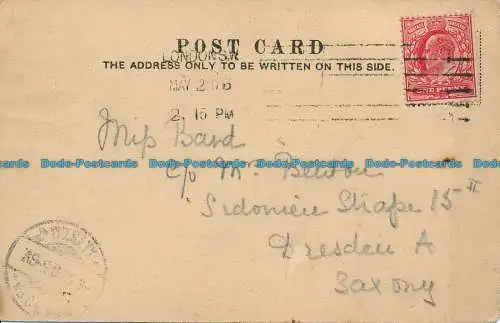 POST CARD
THE ADDRESS ONLY TO BE WRITTEN ON THIS SIDE.
LONDON S.W.
MAY 2
2. 15 PM
ONE PENNY
Miss
c/o Mr.
Dodo-Postcards Dodo-Postcards Dodo-Postcards Dodo-Postcards Dodo-Postcards Dodo-Postcards
Sidonien Straße 15 II
Dresden A
Saxony